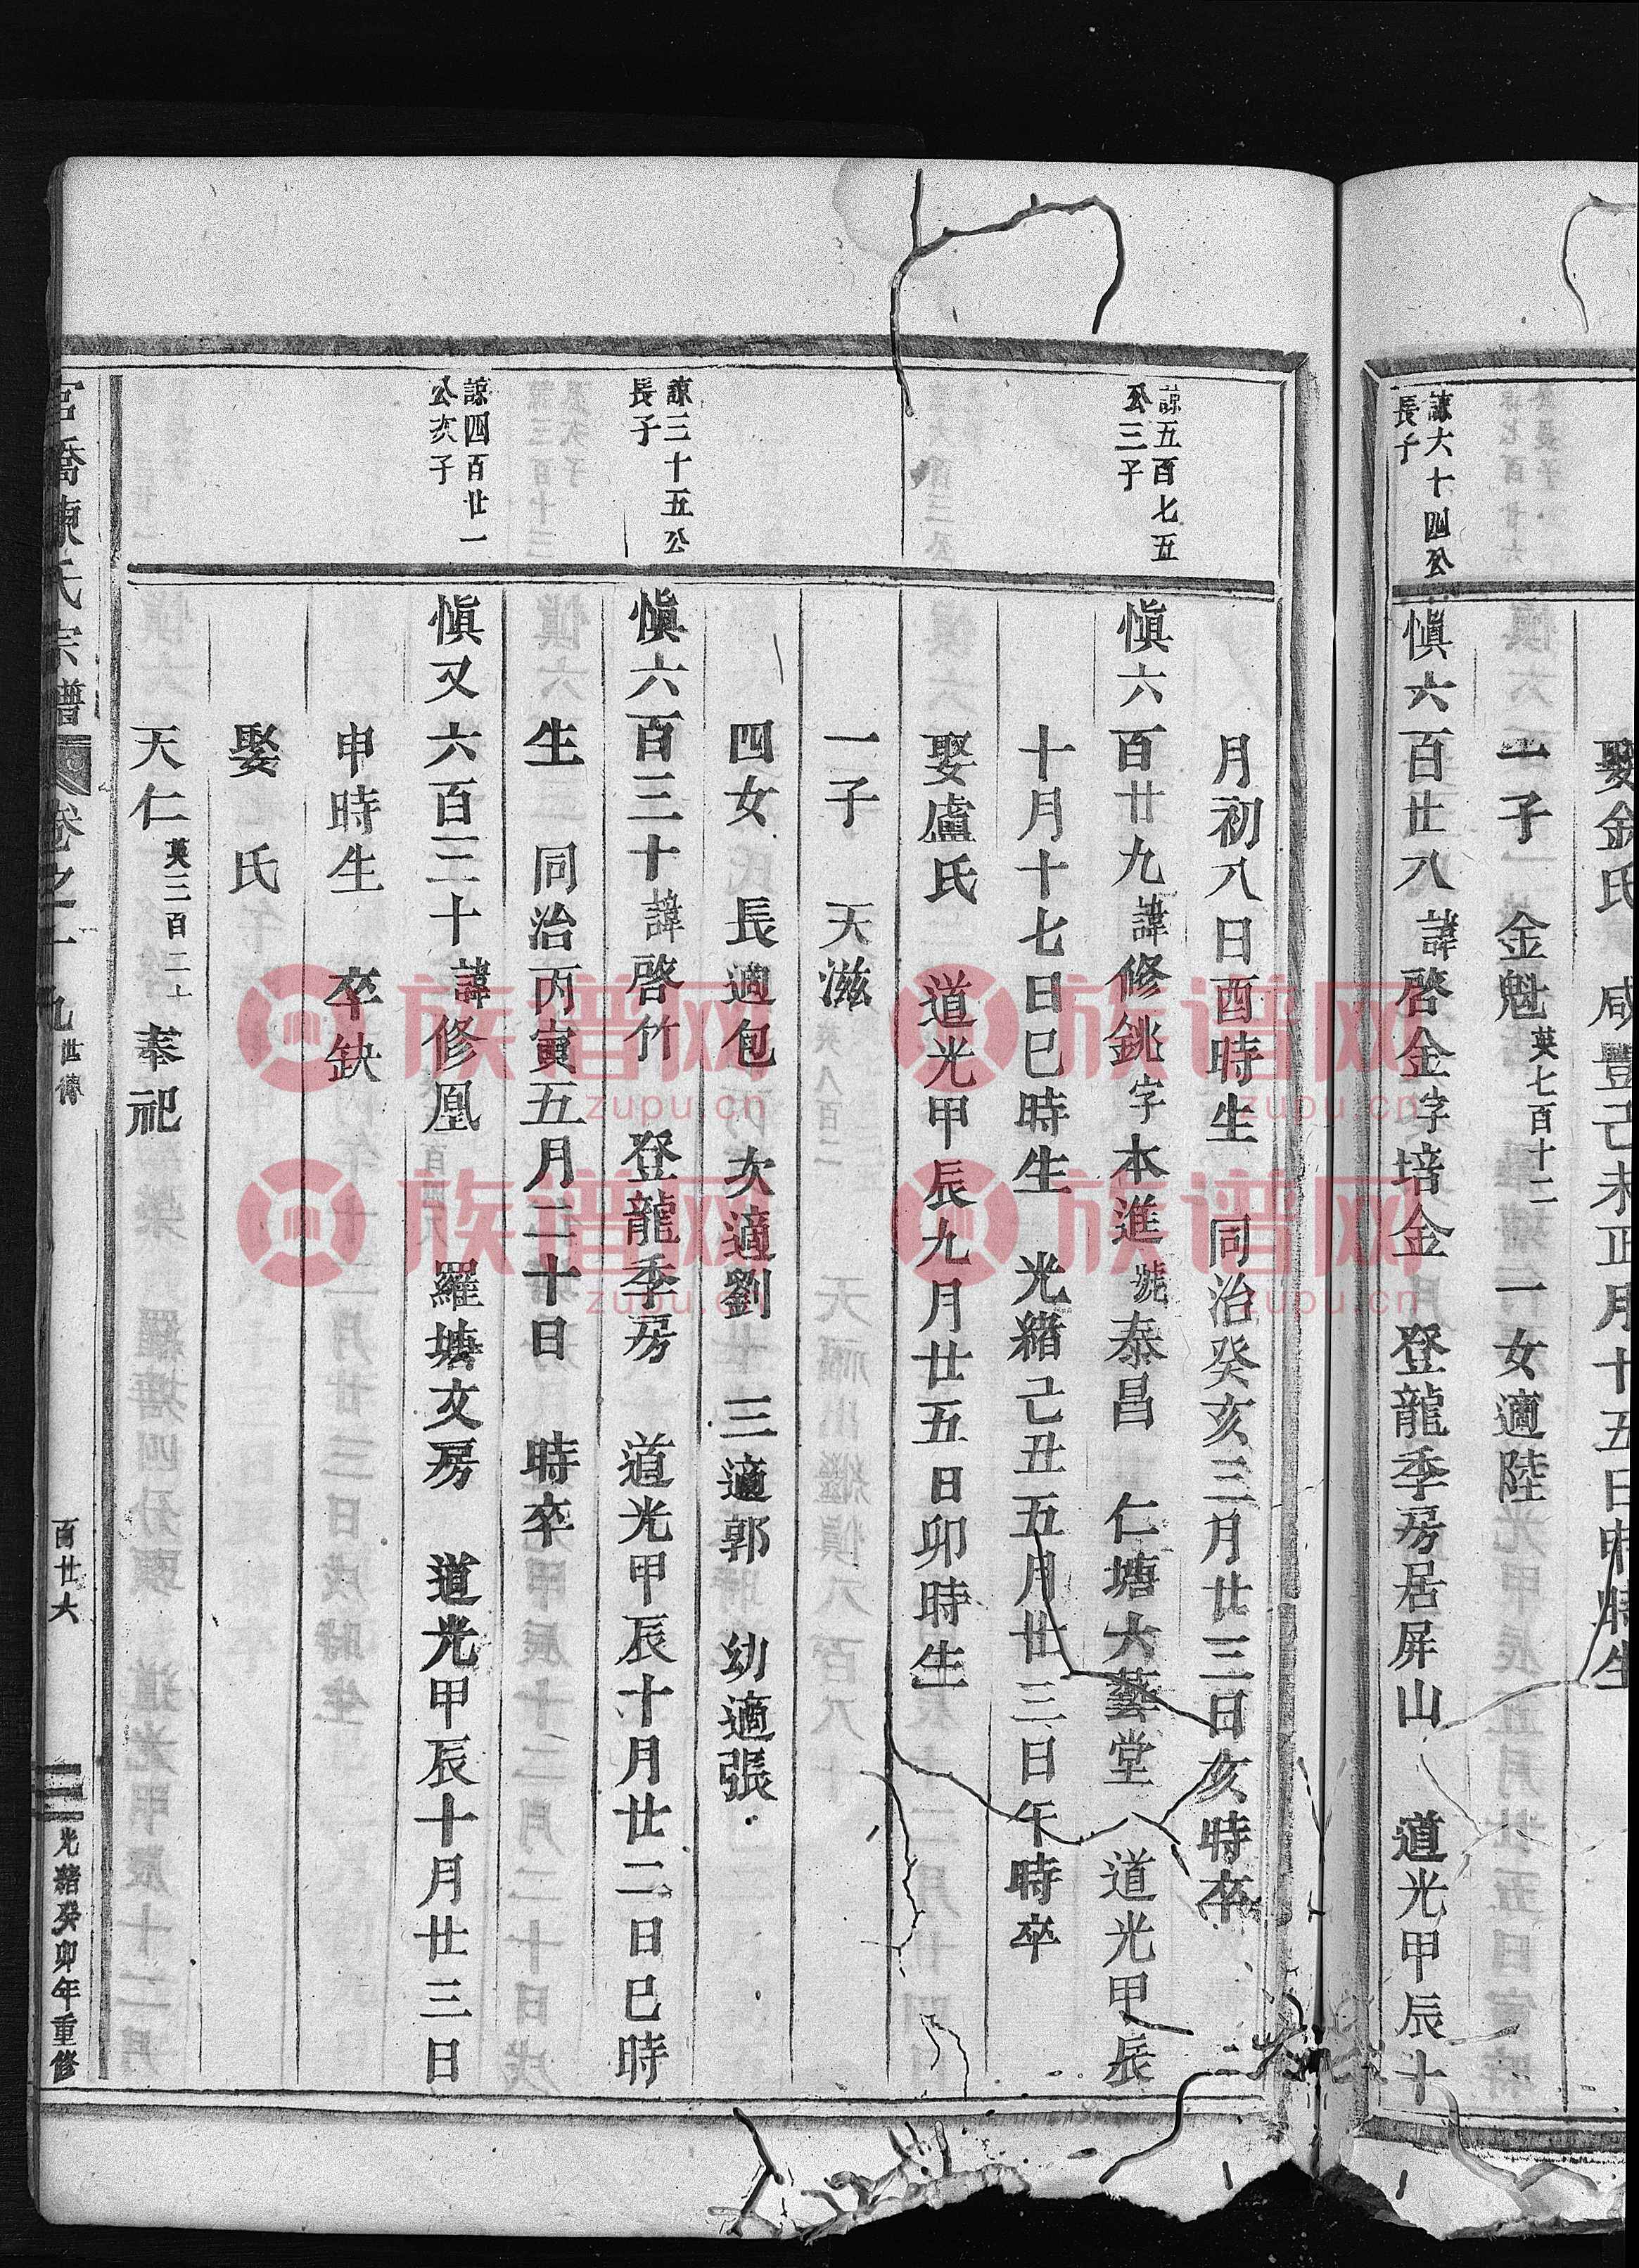 娶金氏 咸豐己未正月十五日申時生
一子 金魁英七百十二 一女適陸
諒六十四公
長子
慎六百廿八諱啓金字培金 登龍季房居屏山 道光甲辰十
月初八日酉時生 同治癸亥三月廿三日亥時卒
諒五百七五
公三子
慎六百廿九諱修銚字本進號泰昌 仁塘大藝堂 道光甲辰
十月十七日巳時生 光緒己丑五月廿三日午時卒
娶盧氏 道光甲辰九月廿五日卯時生
一子 天滋
四女 長適包 次適劉 三適郭 幼適張
諒三十五公
長子
慎六百三十諱啓竹 登龍季房 道光甲辰十月廿二日巳時
生 同治丙寅五月二十日 時卒
諒四百廿一
公次子
慎又六百三十諱修凰 羅塘文房 道光甲辰十月廿三日
申時生 卒缺
娶 氏
天仁英三百二 奉祀
官橋陳氏宗譜 卷之十九世傳 百廿六 光緒癸卯年重修
族谱网
zupu.cn
族谱网
zupu.cn
族谱网
zupu.cn
族谱网
zupu.cn